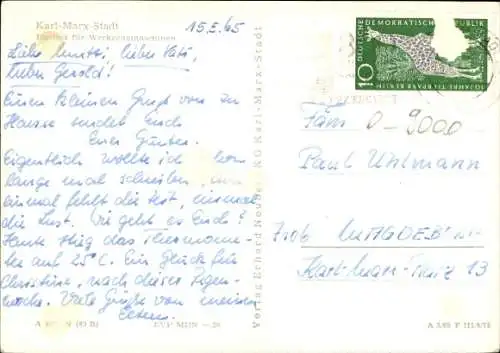 Karl-Marx-Stadt
Institut für Werkzeugmaschinen
15.5.65
Liebe Mutti, lieber Vati,
lieber Gerold!
Einen kleinen Gruß von zu
Hause sendet Euch
Euer Günter.
Eigentlich wollte ich schon
lange mal schreiben,
einmal fehlt die Zeit, einmal
die Lust. Wie geht es Euch?
Heute stieg das Thermome-
ter auf 25°C. Ein Glück für
Christine, nach dieser Regen-
woche. Viele Grüße von meinen
Eltern.
Verlag Erhard Neubert KG Karl-Marx-Stadt
DEUTSCHE DEMOKRATISCHE REPUBLIK
10
JAHRE TIERPARK BERLIN
Fam. D-9000
Paul Uhlmann
MAGDEB
Karl-Marx-Platz 13
EVP MDN -.20
A 3/65 P III/8/78